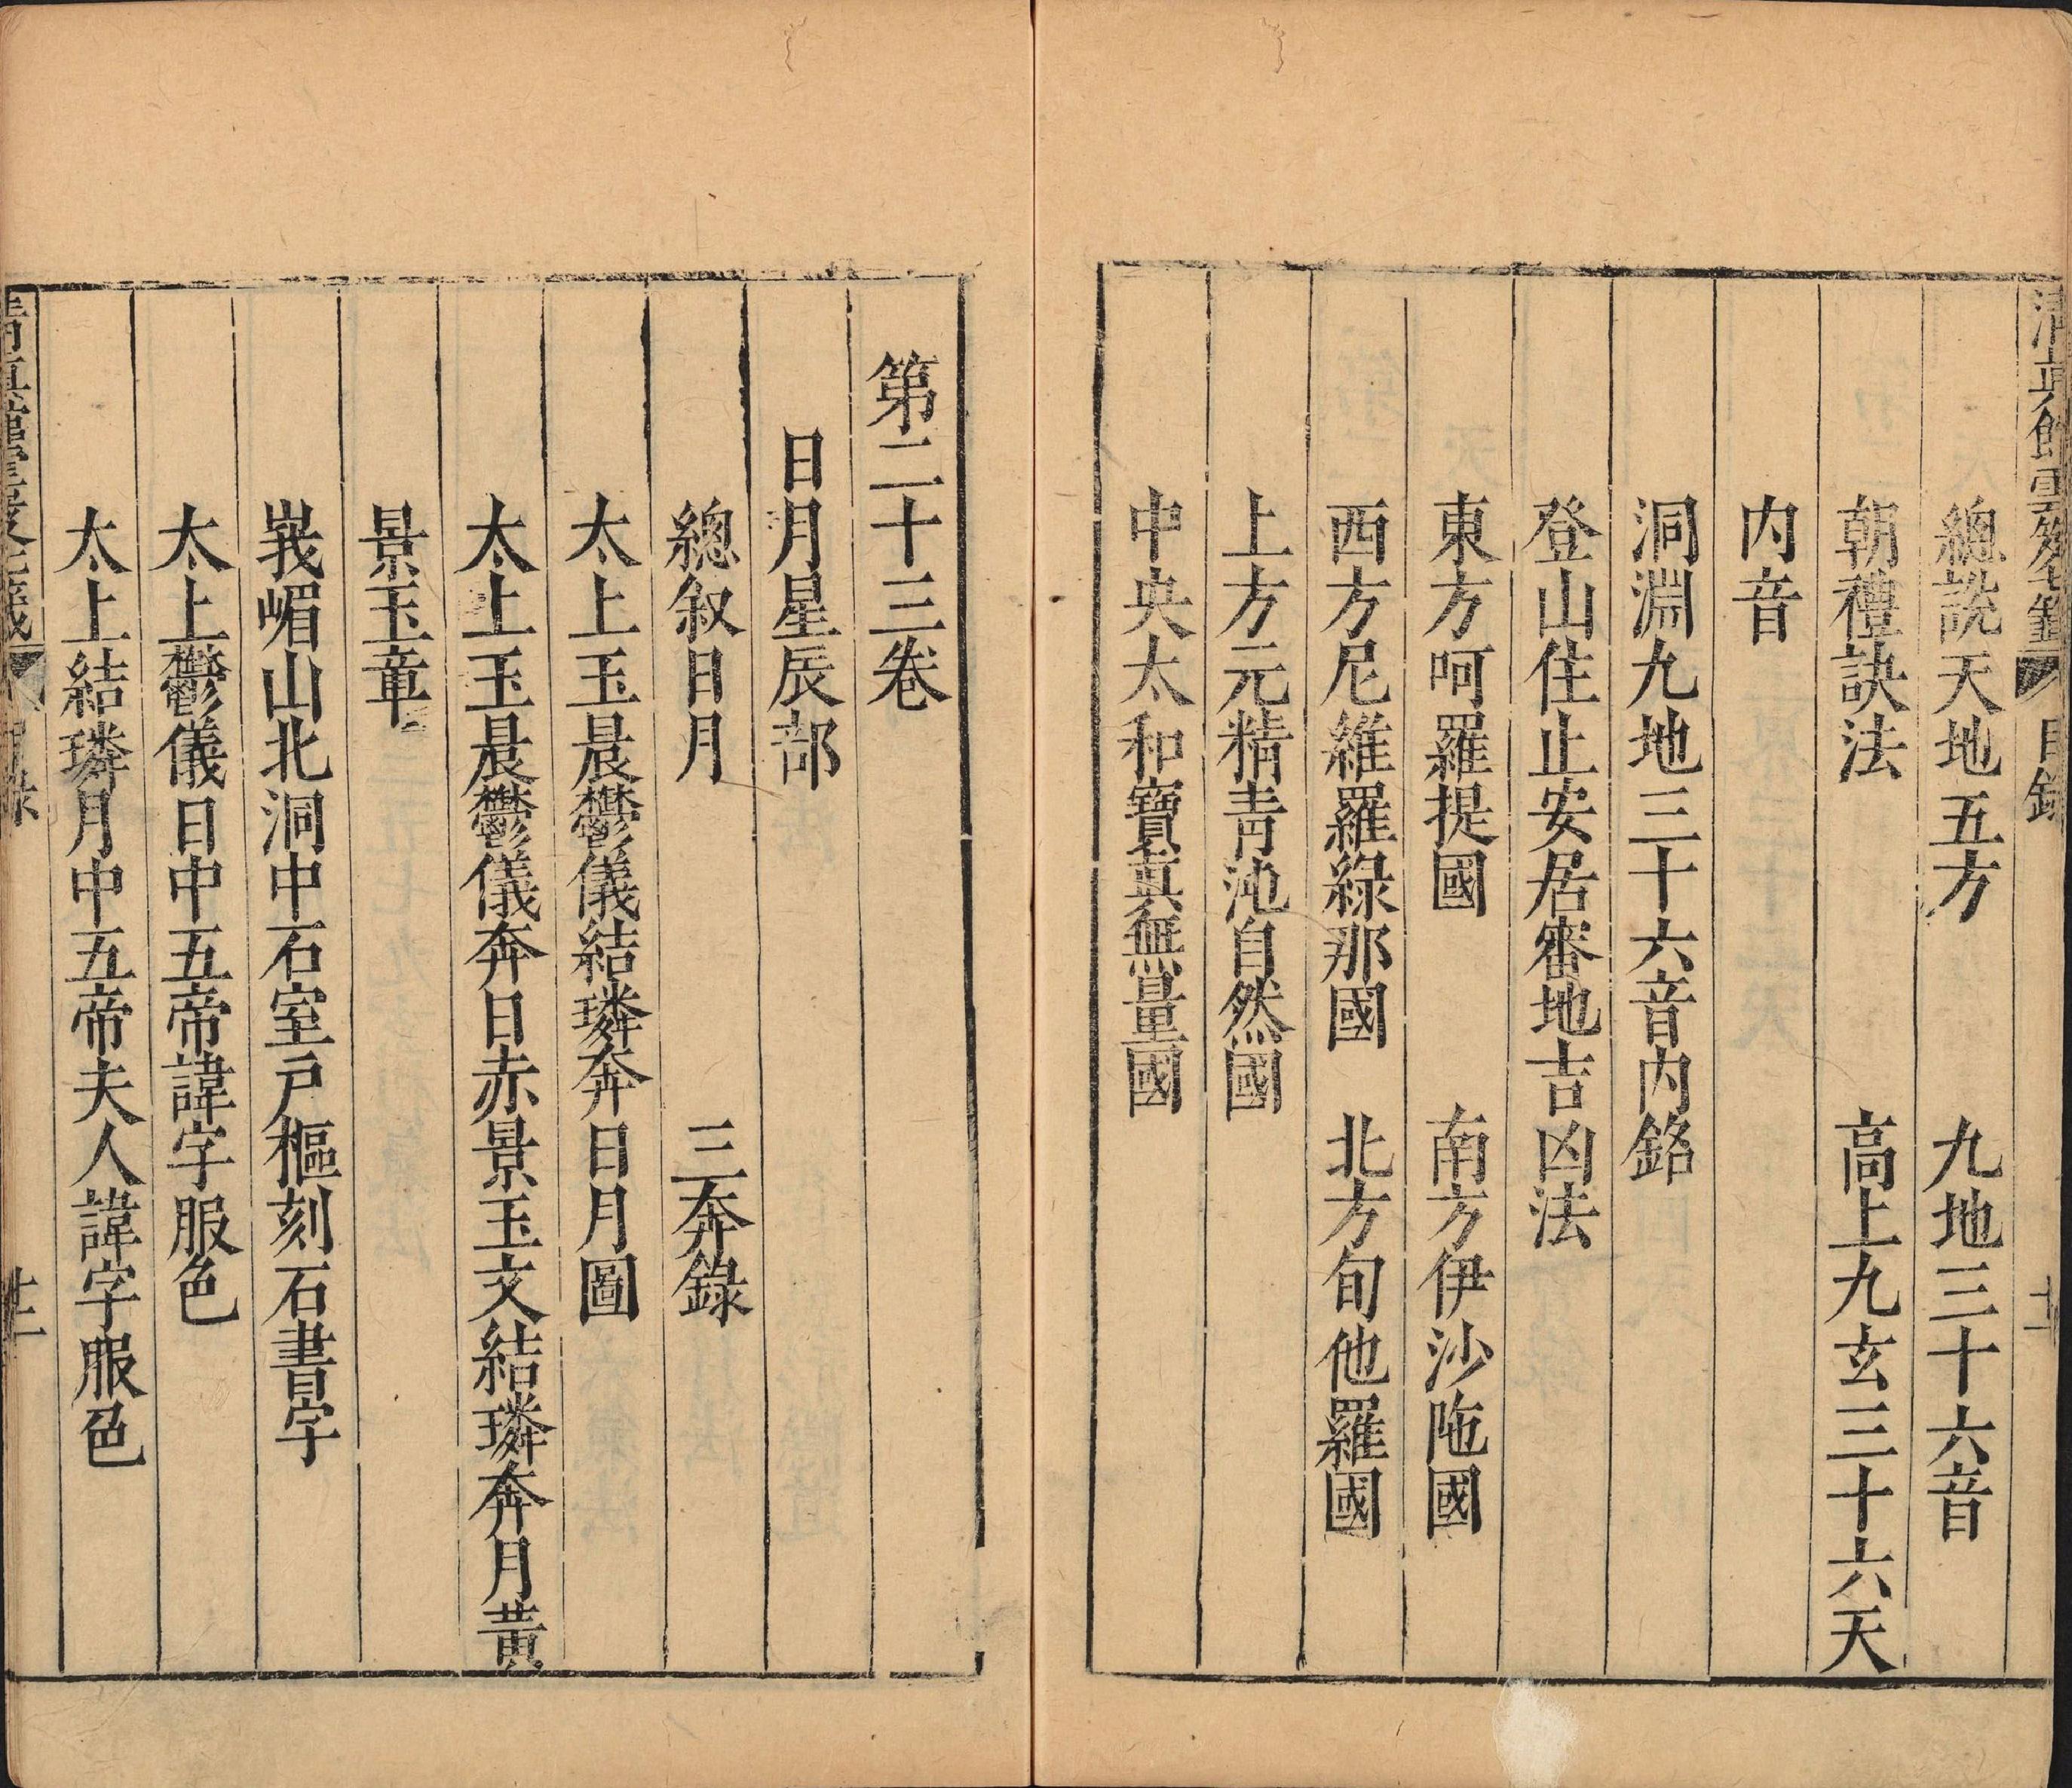 總說天地五方　九地三十六音
朝禮訣法　高上九玄三十六天
内音
洞淵九地三十六音内銘
登山住止安居審地吉凶法
東方呵羅提國　南方伊沙陁國
西方尼維羅綠那國　北方旬他羅國
上方元精青沌自然國
中央太和寶真無量國
第二十三卷
日月星辰部
總叙日月　三奔錄
太上玉晨鬱儀結璘奔日月圖
太上玉晨鬱儀奔日赤景玉文結璘奔月黄
景玉章
峩嵋山北洞中石室户樞刻石書字
太上鬱儀日中五帝諱字服色
太上結璘月中五帝夫人諱字服色